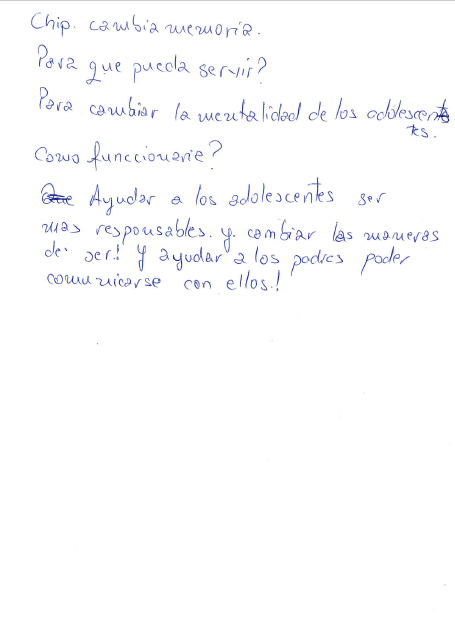 Chip. cambia memoria.
Para que pueda servir?
Para cambiar la mentalidad de los adolescen
tes.
Como funccionarie?
Que Ayudar a los adolescentes ser
mas responsables. y. cambiar las maneras
de ser! y ayudar a los padres poder
comunicarse con ellos.!